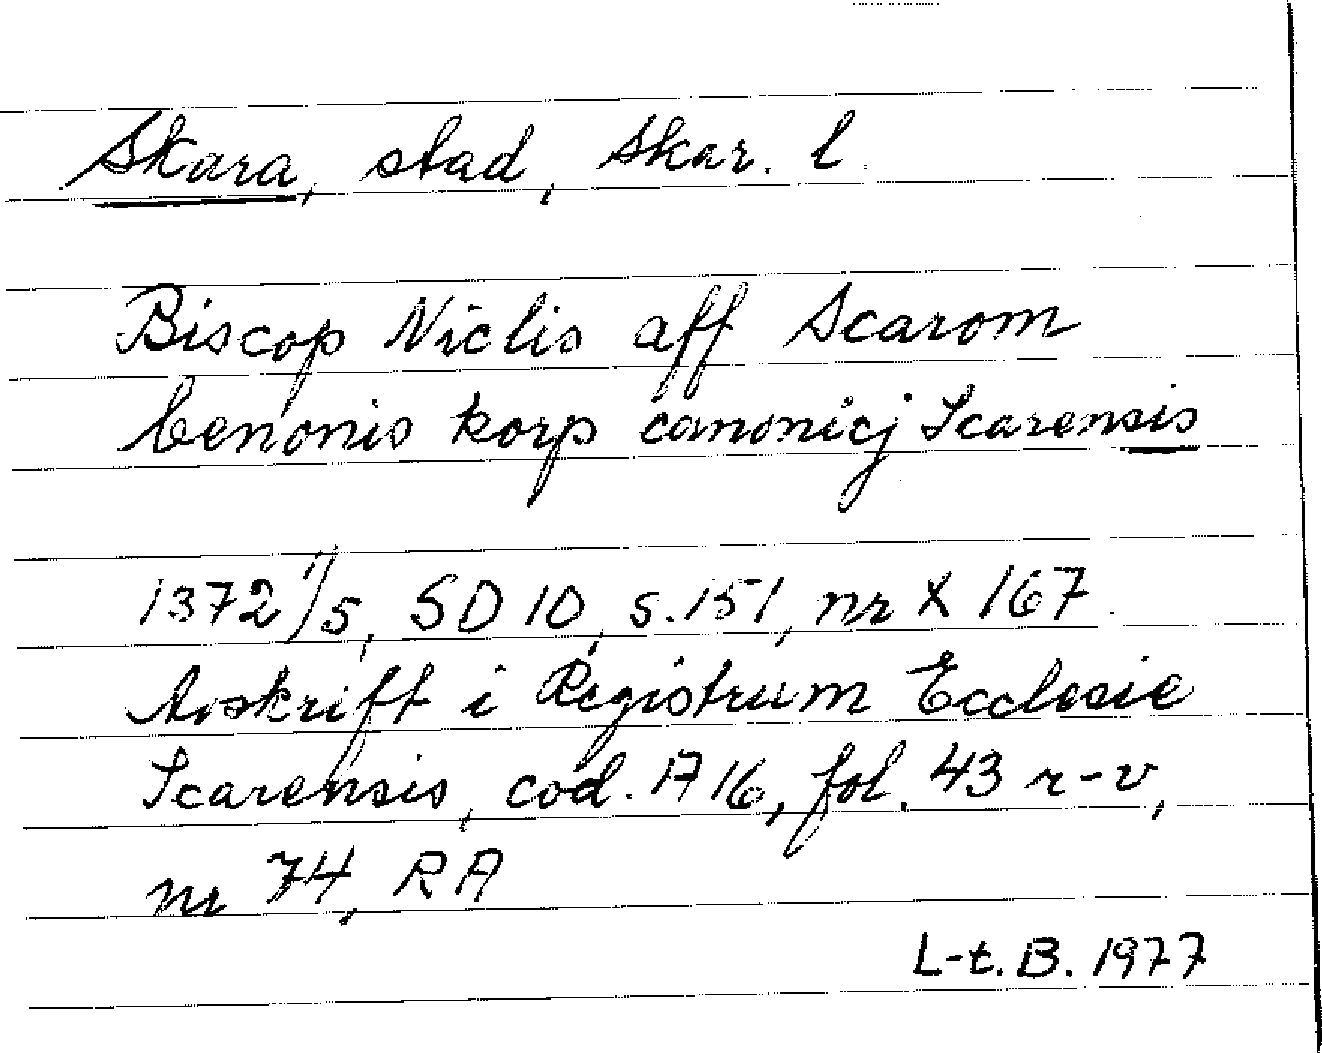 Skara, stad, Skar. l
Biscop Niclis aff Scarom
benonis korp canonicj Scarensis
1372 1/5, SD 10, s. 151, nr X 167.
Avskrift i Registrum Ecclesie
Scarensis, cod. A 16, fol. 43 r-v,
nr 74, RA
L-t. B. 1977